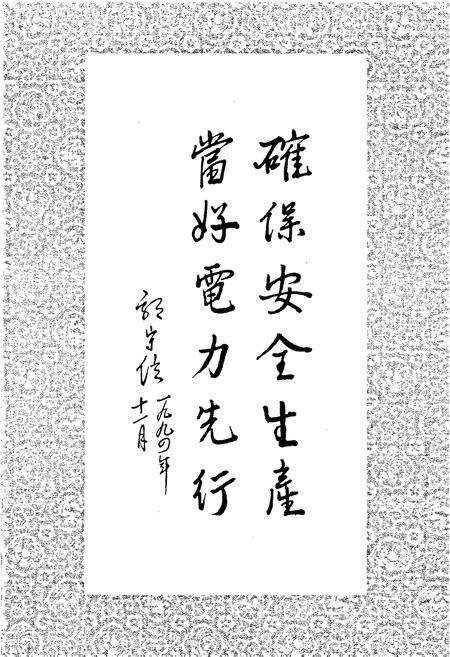 確保安全生產
當好電力先行
一九九四年
十一月